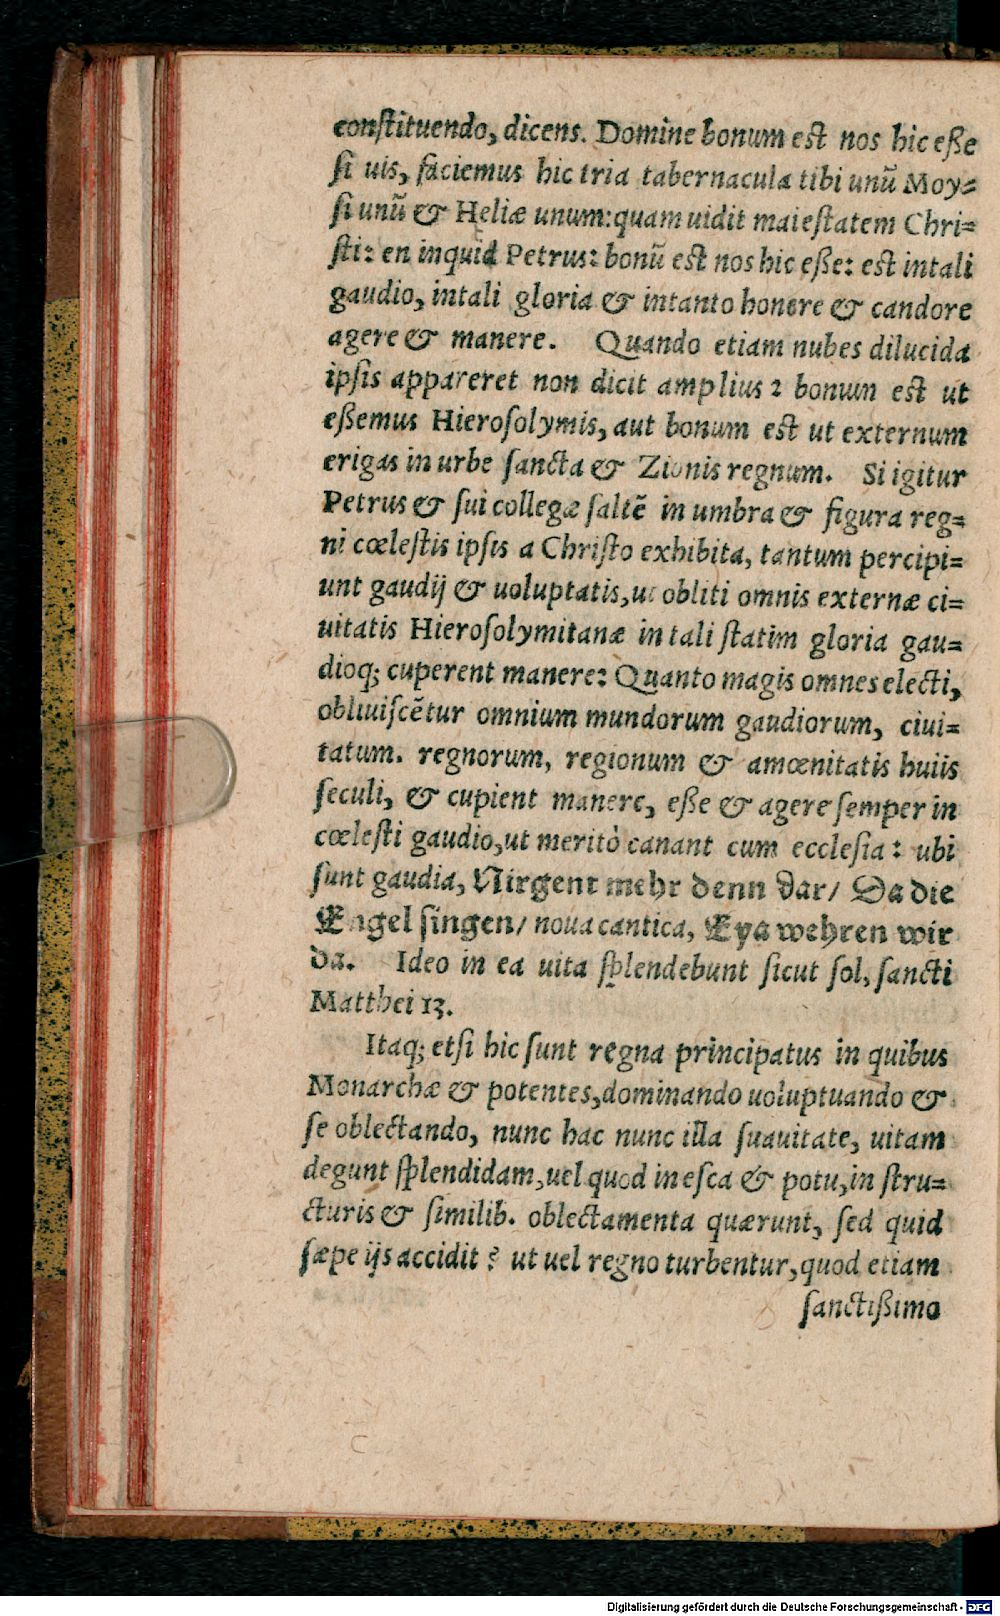 conſtituendo, dicens. Domine bonum est nos hic eße
ſi uis, faciemus hic tria tabernacula tibi unũ Moy=
ſi unũ & Heliæ unum: quam uidit maieſtatem Chri=
ſti: en inquid Petrus: bonũ est nos hic eße: est in tali
gaudio, in tali gloria & in tanto honore & candore
agere & manere. Quando etiam nubes dilucida
ipſis appareret non dicit amplius: bonum est ut
eßemus Hieroſolymis, aut bonum est ut externum
erigas in urbe ſancta & Zionis regnum. Si igitur
Petrus & ſui collegæ ſaltē in umbra & figura reg=
ni cœleſtis ipſis a Chriſto exhibita, tantum percipi=
unt gaudij & uoluptatis, ut obliti omnis externæ ci=
uitatis Hieroſolymitanæ in tali ſtatim gloria gau=
dioq; cuperent manere: Quanto magis omnes electi,
obliuiſcētur omnium mundorum gaudiorum, ciui=
tatum. regnorum, regionum & amœnitatis huiis
ſeculi, & cupient manere, eße & agere ſemper in
cœleſti gaudio, ut meritò canant cum eccleſia: ubi
ſunt gaudia, Nirgent mehr denn dar/ Da die
Engel ſingen/ noua cantica, Eya wehren wir
da. Ideo in ea uita ſplendebunt ſicut ſol, ſancti
Matthei 13.
Itaq; etſi hic ſunt regna principatus in quibus
Monarchæ & potentes, dominando uoluptuando &
ſe oblectando, nunc hac nunc illa ſuauitate, uitam
degunt ſplendidam, uel quod in eſca & potu, in ſtru=
cturis & ſimilib. oblectamenta quærunt, ſed quid
ſæpe ijs accidit? ut uel regno turbentur, quod etiam
ſanctißimo
Digitalisierung gefördert durch die Deutsche Forschungsgemeinschaft - DFG